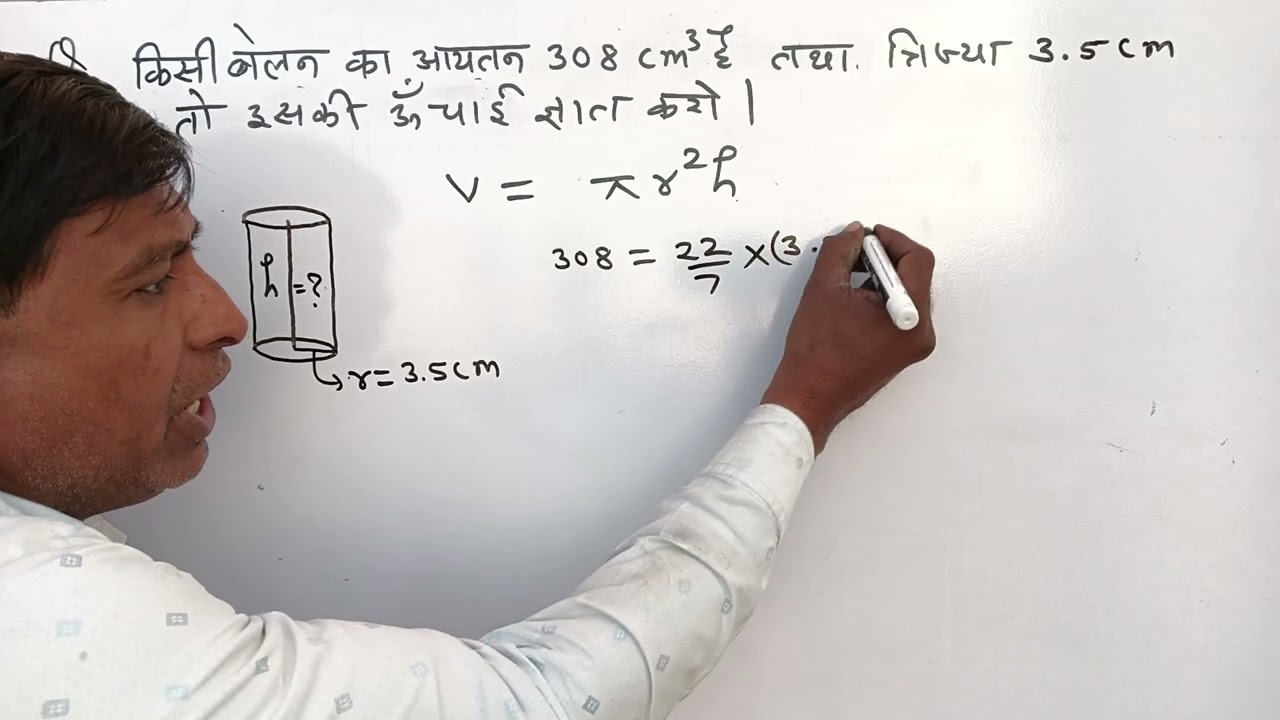 किसी बेलन का आयतन 308 cm³ है तथा त्रिज्या 3.5cm
तो इसकी ऊँचाई ज्ञात करो।
V = πr²h
308 = 22/7 ×(3.
h =?
r=3.5cm